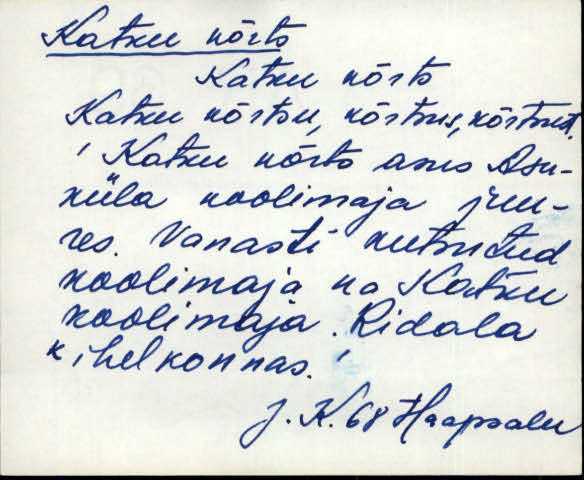 Katku kõrts
Katku kõrts
Katku kõrtsu, kõrtsus, kõrtsust.
' Katku kõrts asus Asu-
küla koolimaja juu-
res. Vanasti kutsutud
koolimaja ka Katku
koolimaja. Ridala
kihelkonnas. '
J. K. 68 Haapsalu